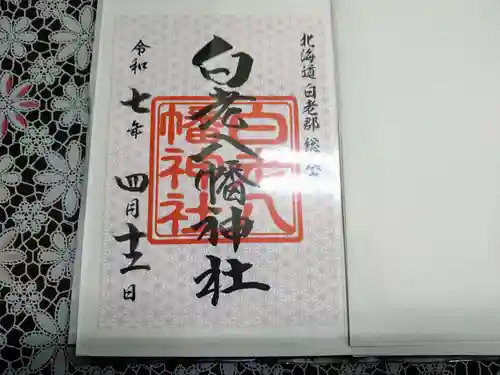 北海道白老郡総鎮守
白老八幡神社
白老八
幡神社
令和七年四月十三日